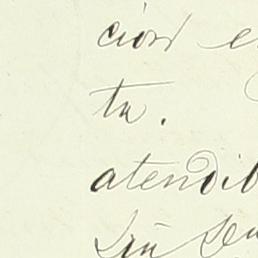 cion e
ta.
atendib
sin su